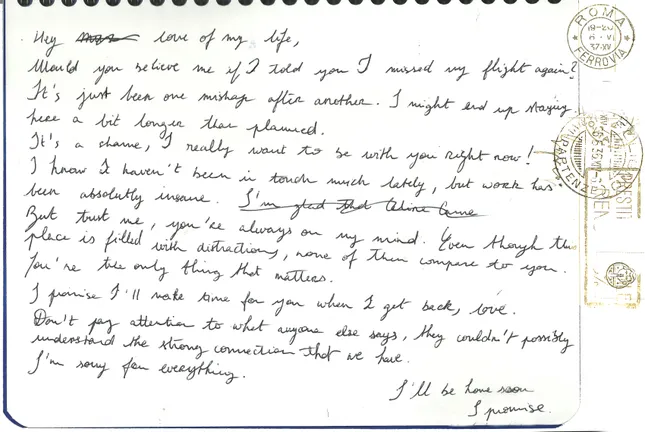 Hey love of my life,
Would you believe me if I told you I missed my flight again?
It's just been one mishap after another. I might end up staying
here a bit longer than planned.
It's a shame, I really want to be with you right now!
I know I haven't been in touch much lately, but work has
been absolutely insane. I'm glad that Celine came
But trust me, you're always on my mind. Even though this
place is filled with distractions, none of them compare to you.
You're the only thing that matters.
I promise I'll make time for you when I get back, love.
Don't pay attention to what anyone else says, they couldn't possibly
understand the strong connection that we have.
I'm sorry for everything.
I'll be home soon
I promise.
ROMA
19-20
37·XV
FERROVIA